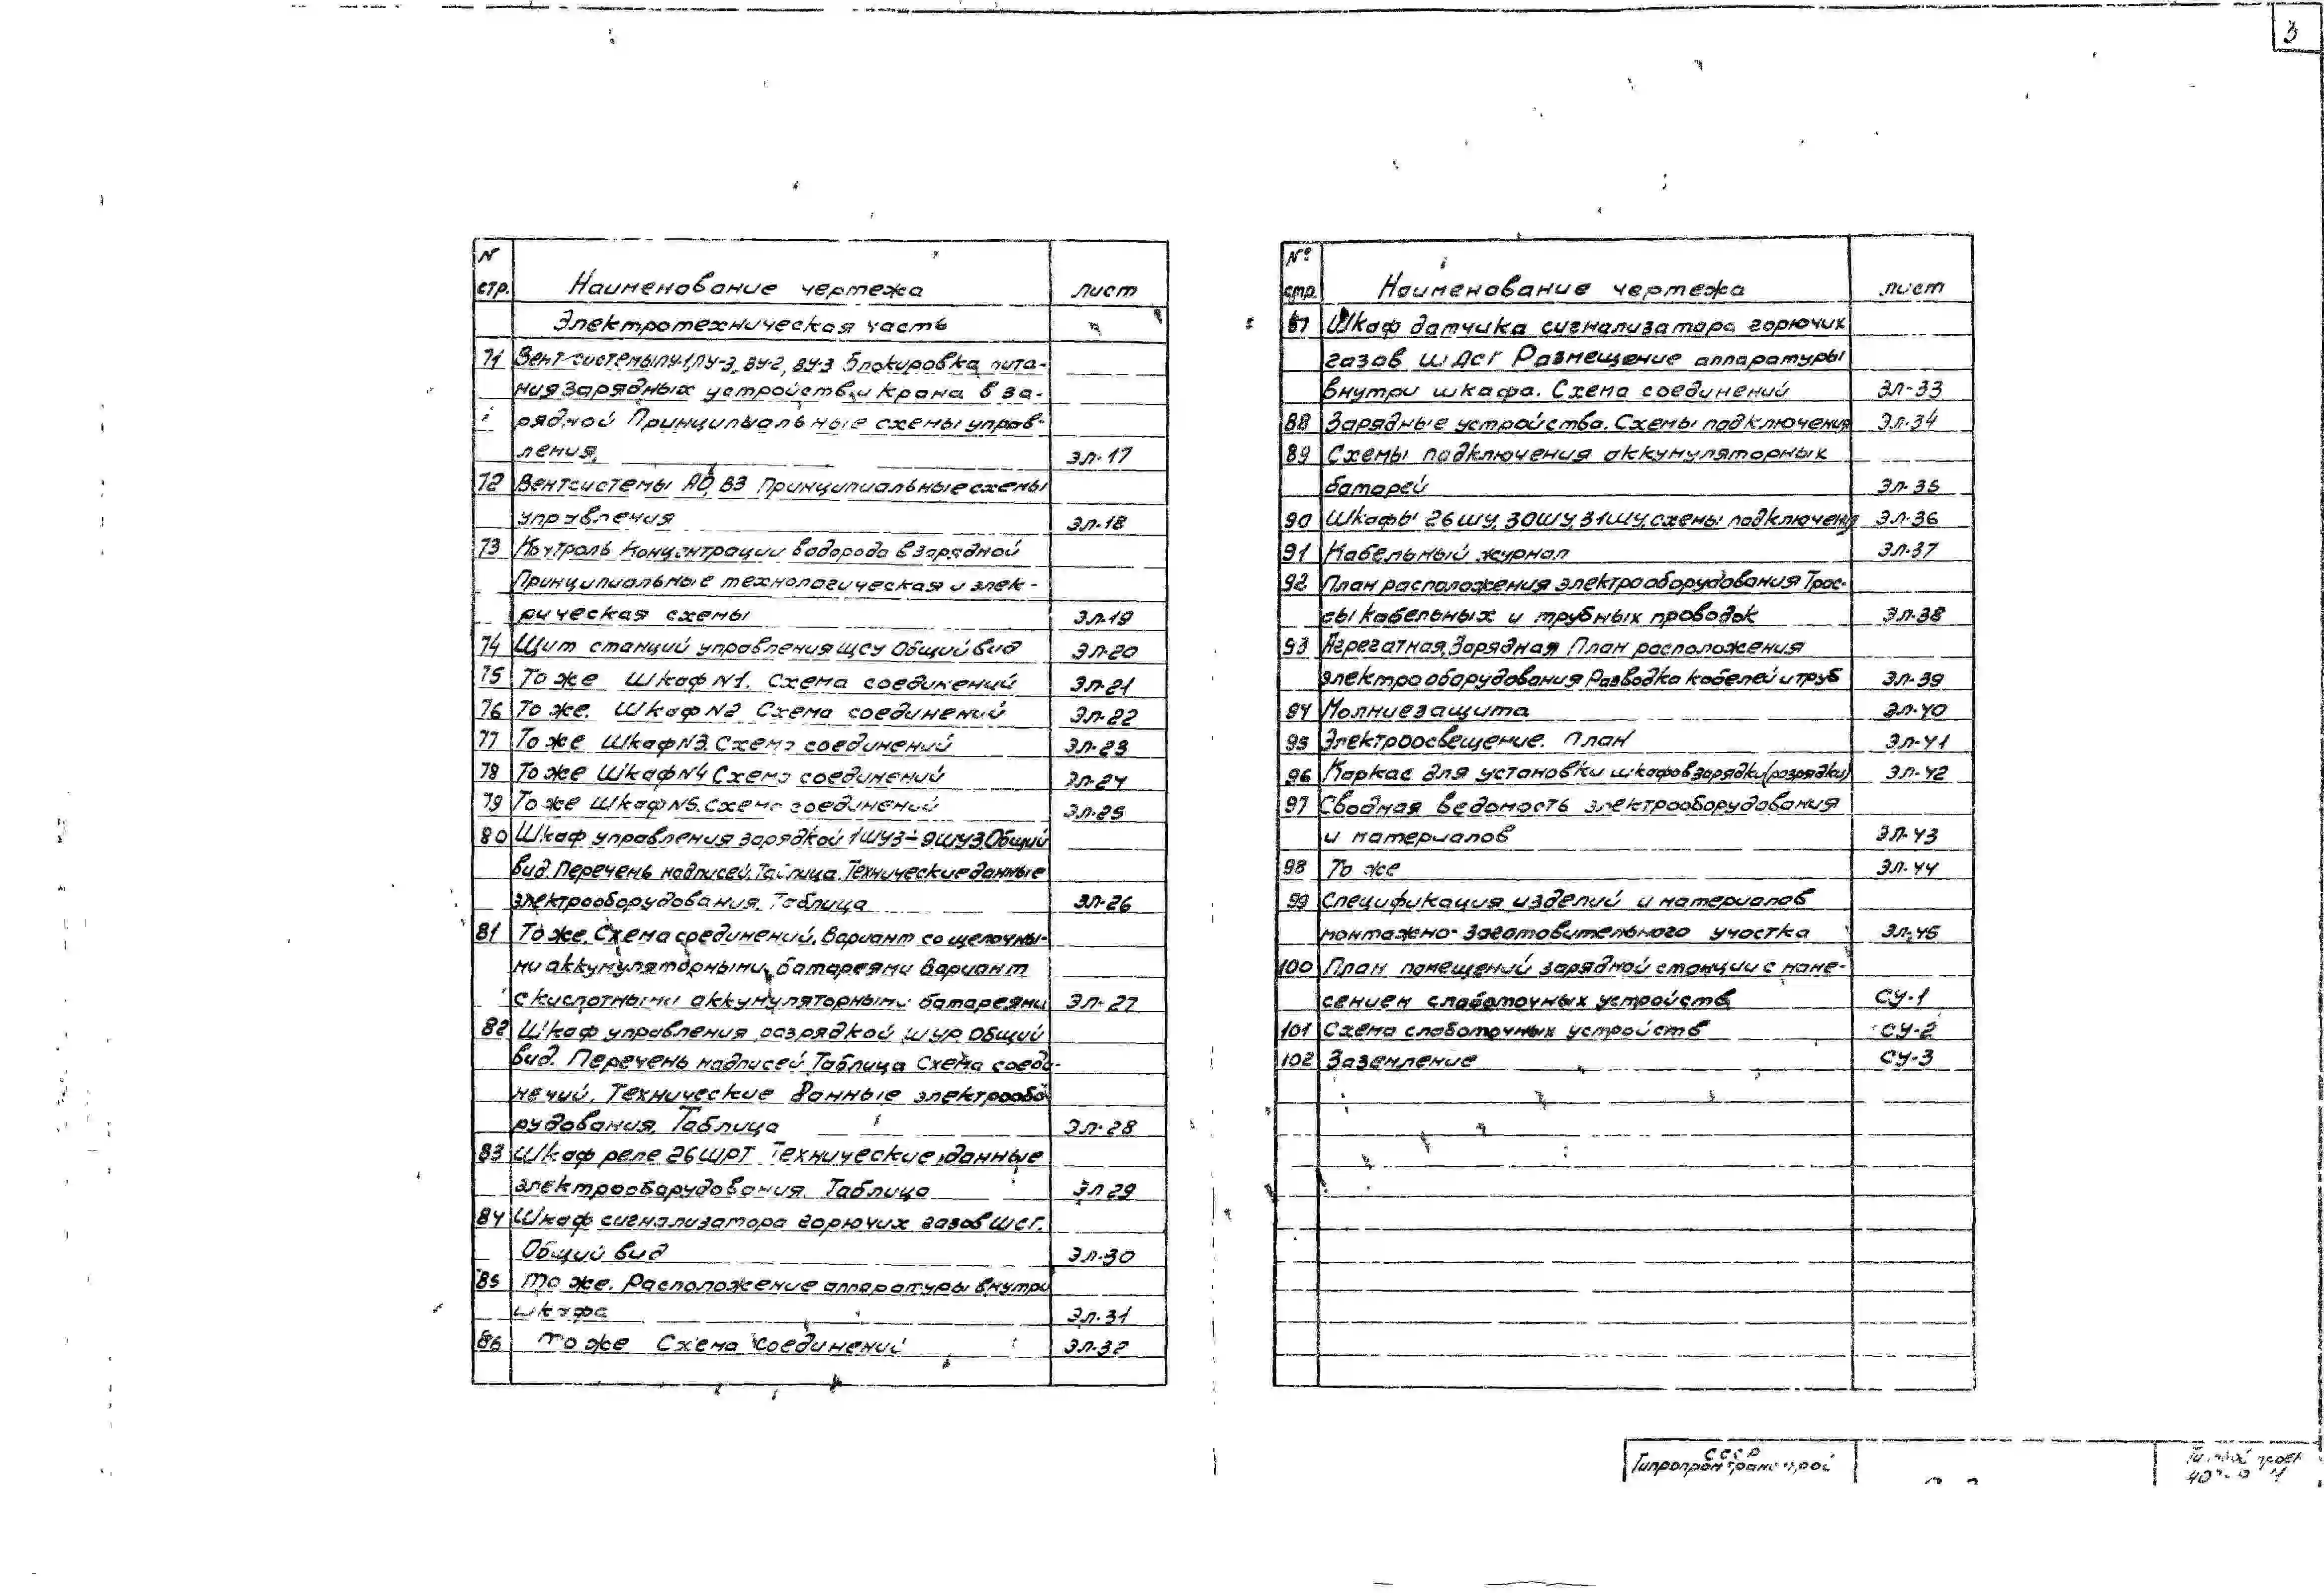 3
N
стр.
Наименование чертежа
лист
Электротехническая часть
71 Вентсистемы ПУ-1, ПУ-3, ВУ-2, ВУ-3 Блокировка пита-
ния зарядных устройств и крана в за-
рядной Принципиальные схемы управ-
ления. ЭЛ-17
72 Вентсистемы А0, В3 Принципиальные схемы
управления ЭЛ-18
73 Контроль концентрации водорода в зарядной
Принципиальные технологическая и элек-
рическая схемы ЭЛ-19
74 Щит станций управления ЩСУ Общий вид ЭЛ-20
75 То же Шкаф N1. Схема соединений ЭЛ-21
76 То же. Шкаф N2 Схема соединений ЭЛ-22
77 То же Шкаф N3. Схема соединений ЭЛ-23
78 То же Шкаф N4 Схема соединений ЭЛ-24
79 То же Шкаф N5. Схема соединений ЭЛ-25
80 Шкаф управления зарядкой 1ШУЗ÷9ШУЗ. Общий
вид. Перечень надписей. Таблица. Технические данные
электрооборудования. Таблица ЭЛ-26
81 То же. Схема соединений. Вариант со щелочны-
ми аккумуляторными батареями Вариант
с кислотными аккумуляторными батареями ЭЛ-27
82 Шкаф управления разрядкой ШУР Общий
вид. Перечень надписей Таблица Схема соеди-
нений. Технические данные электрообо
рудования. Таблица ЭЛ-28
83 Шкаф реле 26ШРТ Технические данные
электрооборудования. Таблица ЭЛ 29
84 Шкаф сигнализатора горючих газов ШСГ.
Общий вид ЭЛ-30
85 То же. Расположение аппаратуры внутри
шкафа ЭЛ-31
86 То же Схема соединений ЭЛ-32
№
стр.
Наименование чертежа
лист
87 Шкаф датчика сигнализатора горючих
газов ШДСГ Размещение аппаратуры
внутри шкафа. Схема соединений ЭЛ-33
88 Зарядные устройства. Схемы подключения ЭЛ-34
89 Схемы подключения аккумуляторных
батарей ЭЛ-35
90 Шкафы 26ШУ, 30ШУ, 31ШУ, схемы подключения ЭЛ-36
91 Кабельный журнал ЭЛ-37
92 План расположения электрооборудования Трас-
сы кабельных и трубных проводок ЭЛ-38
93 Агрегатная, Зарядная План расположения
электрооборудования Разводка кабелей и труб ЭЛ-39
94 Молниезащита ЭЛ-40
95 Электроосвещение. План ЭЛ-41
96 Каркас для установки шкафов зарядки (разрядки) ЭЛ-42
97 Сводная ведомость электрооборудования
и материалов ЭЛ-43
98 То же ЭЛ-44
99 Спецификация изделий и материалов
монтажно-заготовительного участка ЭЛ-45
100 План помещений зарядной станции с нане-
сением слаботочных устройств СУ-1
101 Схема слаботочных устройств СУ-2
102 Заземление СУ-3
СССР
Гипропромтрансстрой
Типовой проект